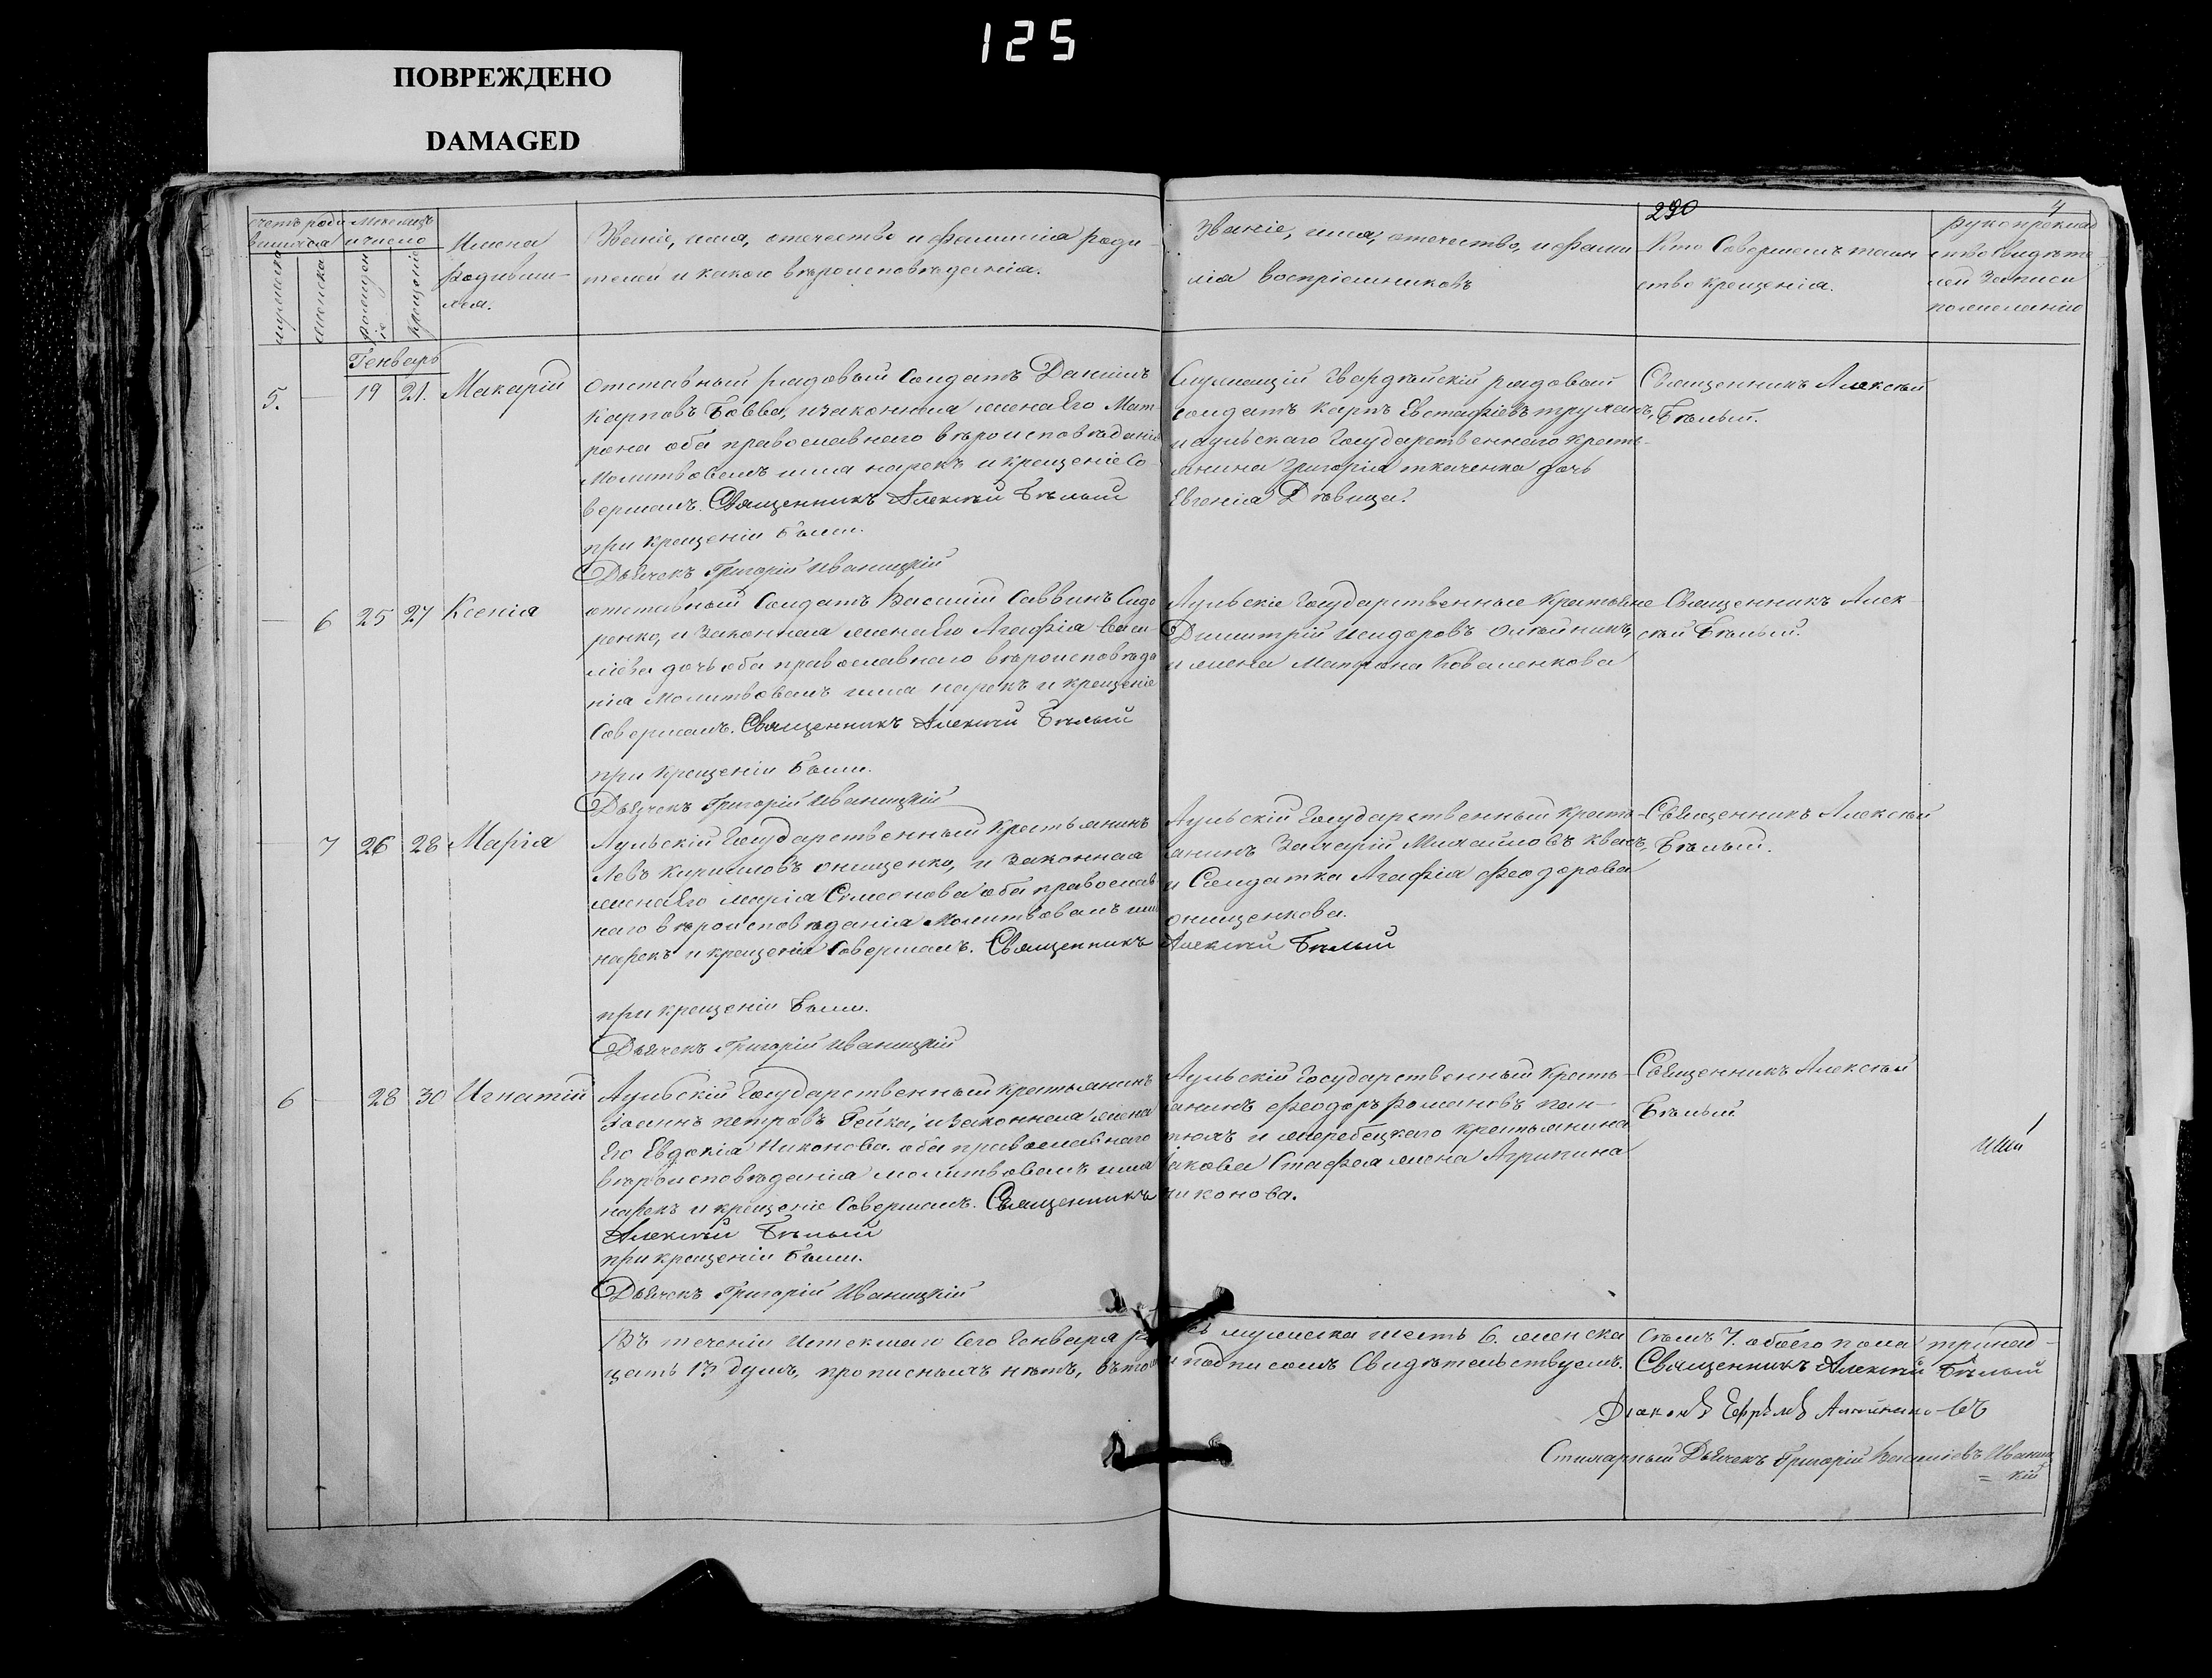 125
ПОВРЕЖДЕНО
DAMAGED
290
4
счетъ роди
вшихся
Мѣсяцъ
и число
мужеска
женска
рожден
ія
крещенія
Имена
Родивши-
хся.
Званіе, имя, отечество и фамилія роди-
телей и какого вѣроисповѣданія.
Званіе, имя, отечество, и фами
лія воспріемниковъ
Кто Совершалъ таин
ство крещенія.
рукоприклад
ство Свидѣте
лей Записи
по желанію
Генварь
5. — 19 21. Макарій
отставный рядовый Солдатъ Даніилъ
Карповъ Бовва, и законная жена Его Мат-
рона оба православнаго вѣроисповѣданія
Молитвовалъ имя нарекъ и крещеніе Со-
вершалъ. Священникъ Алексѣй Бѣлый
при крещеніи были.
Дьячекъ Григорій Иваницкій
Служащій Гвардѣйскій рядовый
солдатъ карпъ Евстафіевъ труманъ,
и аульскаго Государственнаго кресть-
янина Григорія ткаченка дочь
Евгенія Дѣвица.
Священникъ Алексѣй
Бѣлый.
— 6 25 27 Ксенія
отставный Солдатъ Василій Саввинъ Сидо
ренко, и Законная жена Его Агафія Васи-
ліева дочь оба православнаго вѣроисповѣда
нія Молитвовалъ имя нарекъ и крещеніе
Совершалъ. Священникъ Алексѣй Бѣлый
при Крещеніи были.
Дьячекъ Григорій Иваницкій
Аульскіе Государственные Крестьяне
Димитрій Исидоровъ Олѣйникъ,
и жена Матрона Коваленкова
Священникъ Алек-
сѣй Бѣлый.
— 7 26 28 Марія
Аульскій Государственный Крестьянинъ
Левъ Кириловъ онищенко, и Законная
жена Его Марія Симеонова оба православ
наго вѣроисповѣданія Молитвовалъ имя
нарекъ и крещенія Совершалъ. Священникъ Алексѣй Бѣлый
при крещеніи были.
Дьячекъ Григорій Иваницкій
Аульскій Государственный кресть-
янинъ Захарій Михайловъ квачъ,
и Солдатка Агафія Феодорова
онищенкова.
Священникъ Алексѣй
Бѣлый.
6 — 28 30 Игнатій
Аульскій Государственный крестьянинъ
Іоаннъ петровъ Гейка, и Законная жена
Его Евдокія Никонова. оба православнаго
вѣроисповѣданія молитвовалъ имя
нарекъ и крещеніе Совершалъ. Священникъ
Алексѣй Бѣлый
при крещеніи были.
Дьячекъ Григорій Иваницкій
Аульскій Государственный Кресть-
янинъ Феодоръ Романовъ пан-
тюхъ и жеребецкаго крестьянина
Іакова Стафея жена Агрипина
никонова.
Священникъ Алексѣй
Бѣлый
Въ теченіи Истекшаго Сего Генваря мужеска шесть 6. женска Сѣмъ 7. обоего пола тринад-
цать 13 душъ, прописныхъ нѣтъ, въ томъ и подписомъ Свидѣтельствуемъ. Священникъ Алексѣй Бѣлый
Діаконъ Ефремъ
Стихарный Дьячекъ Григорій Василіевъ Иваниц
= кій